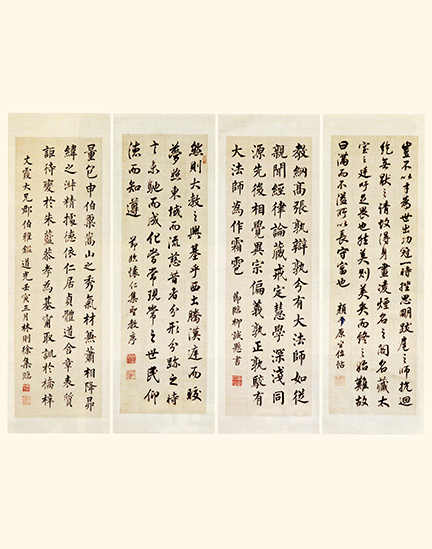 豈不以才為世出功冠一時挫思明跋扈之師抗迴
紇無厭之請故得身畫凌煙之閣名藏太
室之廷吁足畏也然美則美矣而終之始難故
曰滿而不溢所以長守富也 顏平原坐位帖
教網高張孰辯孰分有大法師如從
親聞經律論藏戒定慧學深淺同
源先後相覺異宗偏義孰正孰駁有
大法師為作霜雹 節臨柳誠懸書
然則大教之興基乎西土騰漢庭而皎
夢照東域而流慈昔者分形分跡之時
言未馳而成化當常現常之世民仰
德而知遵 節臨懷仁集聖教序
量包申伯稟嵩山之秀氣材兼蕭相降昴
緯之淋精據德依仁居貞體道含章表質
詎待變於朱藍恭孝為基寧取訊於橋梓
文霞大兄郡伯雅鑑道光壬寅五月林則徐集臨